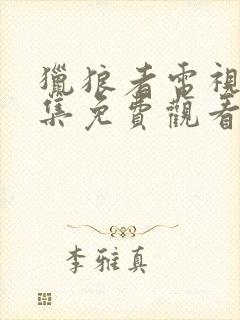 獵狼者電視
集免費觀看
李雅真